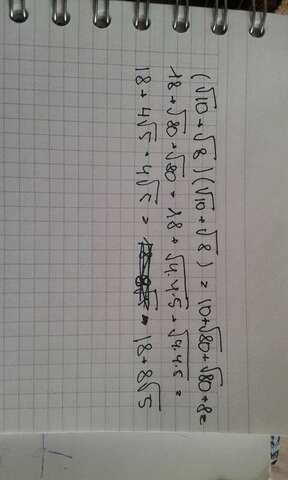 (√10 + √8)(√10 + √8) = 10+√80+√80+8=
18+√80+√80 = 18+√4·4·5+√4·4·5 =
18+4√5+4√5 = = 18+8√5